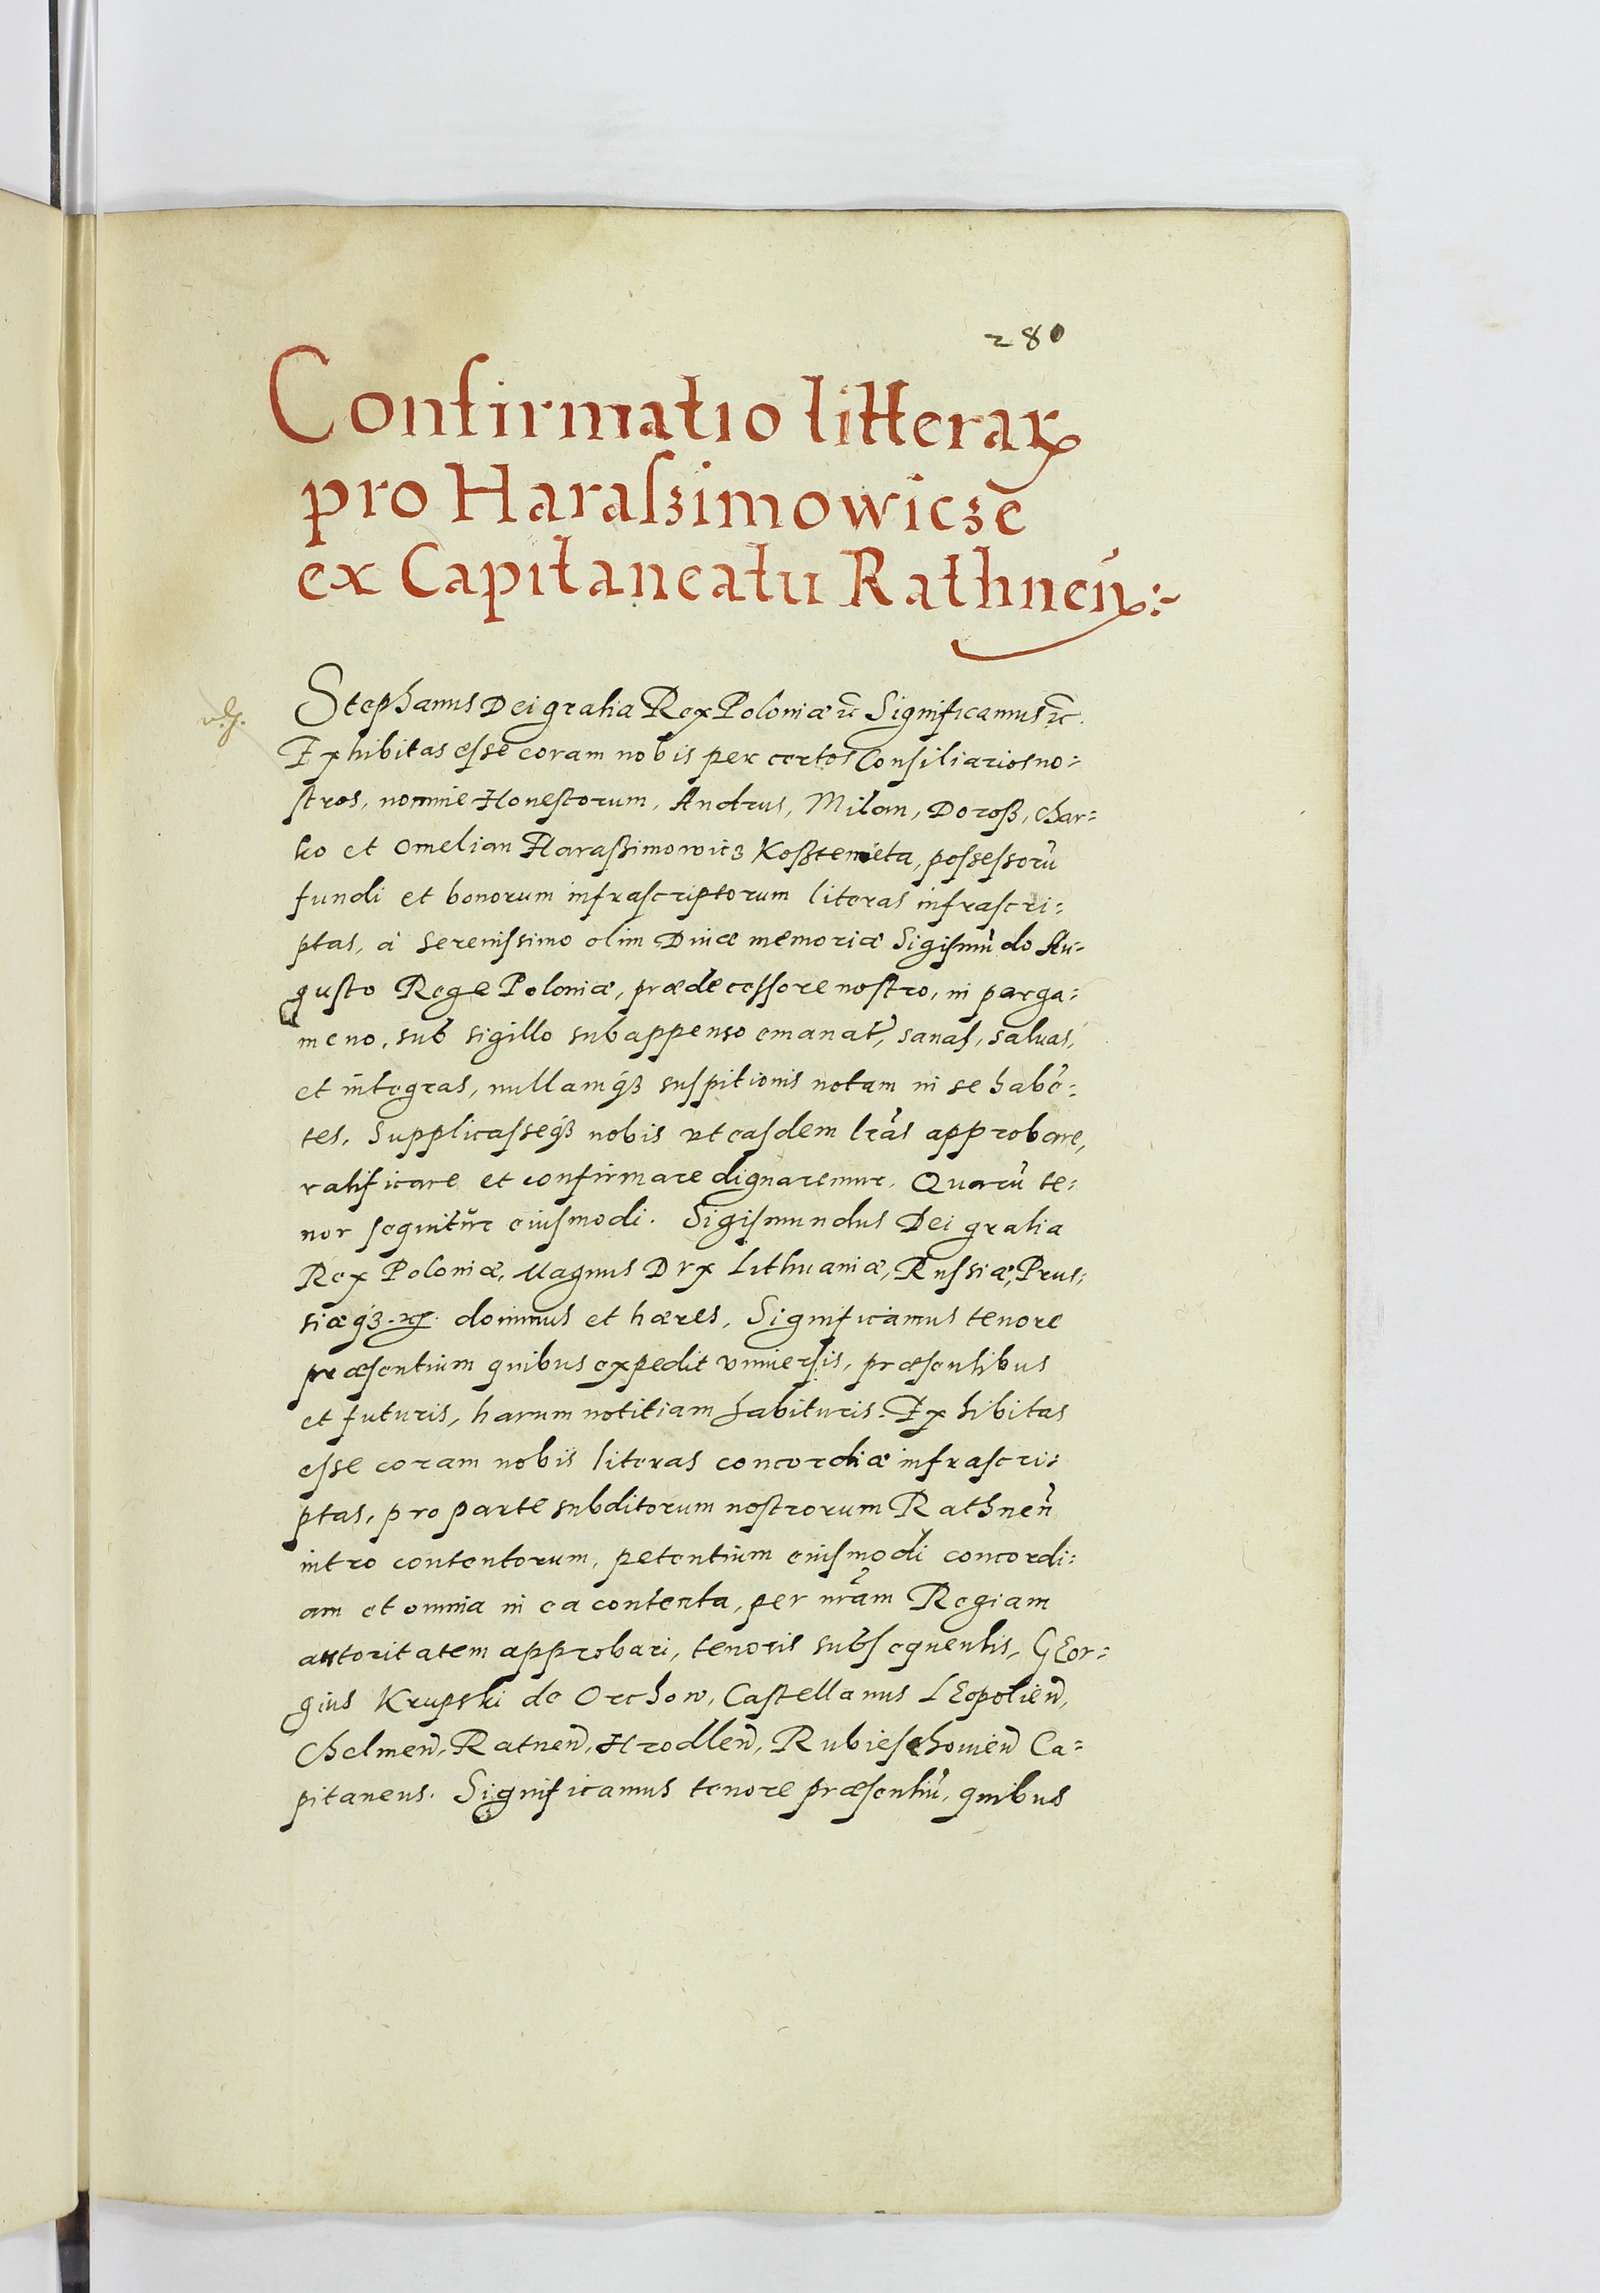 280
Confirmatio litteraꝝ
pro Haraſzimowicze
ex Capitaneatu Rathneñ:~
Stephanus Dei gratia Rex Poloniæ ꝛc̃ Significamus ꝛc̃.
Exhibitas eſse coram nobis per certos Conſiliarios no=
ſtros, nomine Honeſtorum, Andrus, Milan, Doroß, Char=
ko et Omelian Haraßimowicz Koßtenieta, poſseſsorũ
fundi et bonorum infraſcriptorum literas infraſcri=
ptas, à Sereniſsimo olim Diuæ memoriæ Sigiſmũdo Au=
guſto Rege Poloniæ, prædeceſsore noſtro, in perga=
meno, sub sigillo subappenso emanat̃, sanas, saluas,
et integras, nullamqꝫ suſpitionis notam in se habẽ=
tes, Supplicaſseqꝫ nobis vt eaſdem lrãs approbare,
ratificare et confirmare dignaremur. Quarũ te=
nor ſequitur eiuſmodi. Sigiſmundus Dei gratia
Rex Poloniæ, Magnus Dux Lithuaniæ, Ruſsiæ, Pruſ=
siæqꝫ. ꝛc̃. dominus et hæres, Significamus tenore
præſentium quibus expedit vniuerſis, præſentibus
et futuris, harum notitiam habituris. Exhibitas
eſse coram nobis literas concordiæ infraſcri=
ptas, pro parte subditorum noſtrorum Rathneñ
intro contentorum, petentium eiuſmodi concordi=
am et omnia in ea contenta, per nrãm Regiam
autoritatem approbari, tenoris subſequentis, GEor=
gius Krupski de Orchow, Caſtellanus LEopolieñ,
Chelmeñ, Ratneñ, Hrodleñ, Rubieſchowieñ Ca=
pitaneus. Significamus tenore præſentiũ, quibus